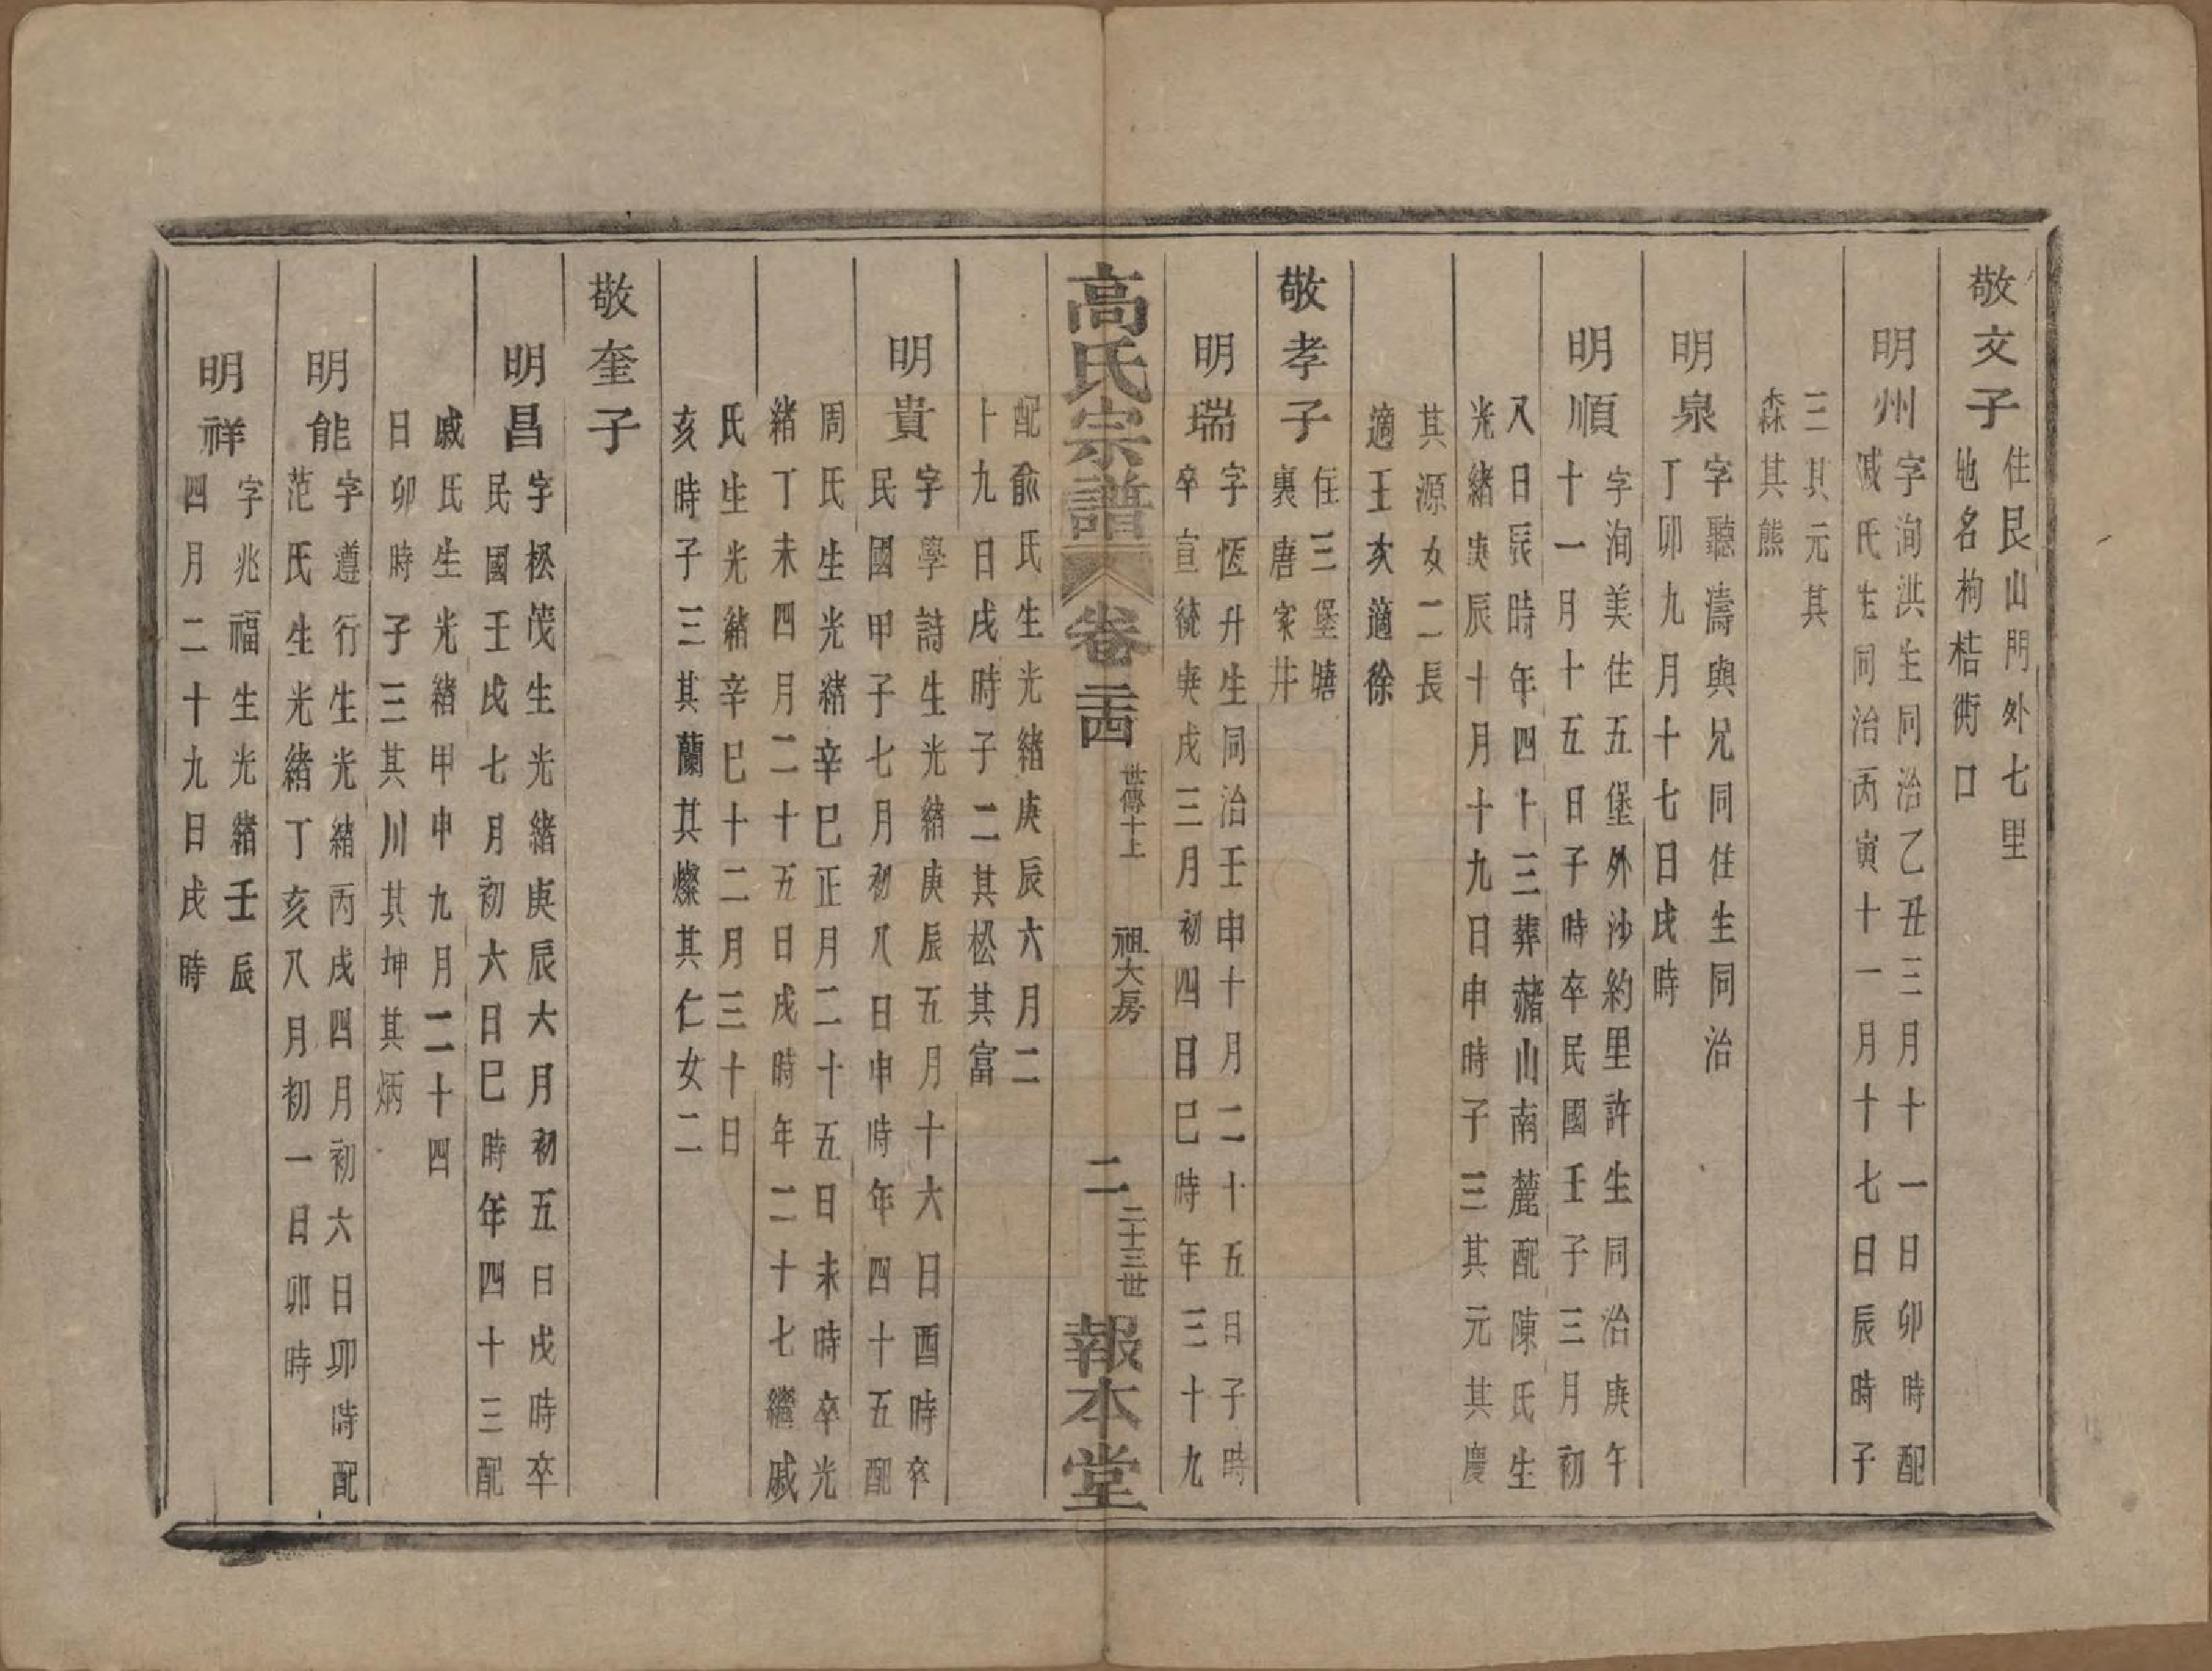 敬文子
住艮山門外七里
地名枸桔衖口
明州
字洵洪生同治乙丑三月十一日卯時配
戚氏生同治丙寅十一月十七日辰時子
三其元其
森其熊
明泉
字聽濤與兄同住生同治
丁卯九月十七日戌時
明順
字洵美住五堡外沙約里許生同治庚午
十一月十五日子時卒民國壬子三月初
八日辰時年四十三葬赭山南麓配陳氏生
光緒庚辰十月十九日申時子三其元其慶
其源女二長
適王次適徐
敬孝子
住三堡塘
裏唐家井
明瑞
字恆升生同治壬申十月二十五日子時
卒宣統庚戌三月初四日巳時年三十九
高氏宗譜
卷二十四
世傳十上
祖大房
二
二十三世
報本堂
配俞氏生光緒庚辰六月二
十九日戌時子二其松其富
明貴
字學詩生光緒庚辰五月十六日酉時卒
民國甲子七月初八日申時年四十五配
周氏生光緒辛巳正月二十五日未時卒光
緒丁未四月二十五日戌時年二十七繼戚
氏生光緒辛巳十二月三十日
亥時子三其蘭其燦其仁女二
敬奎子
明昌
字松茂生光緒庚辰六月初五日戌時卒
民國壬戌七月初六日巳時年四十三配
戚氏生光緒甲申九月二十四
日卯時子三其川其坤其炳
明能
字遵行生光緒丙戌四月初六日卯時配
范氏生光緒丁亥八月初一日卯時
明祥
字兆福生光緒壬辰
四月二十九日戌時